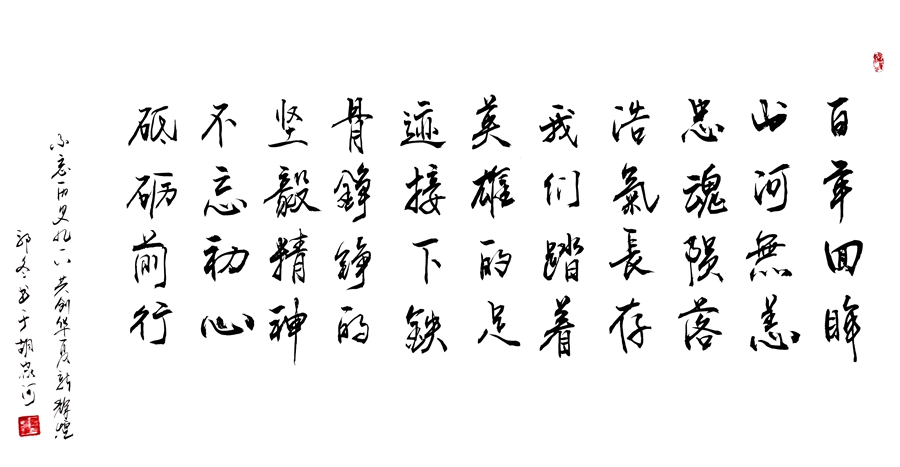 百年回眸
山河無恙
忠魂陨落
浩氣長存
我们踏着
英雄的足
迹接下鉄
骨錚錚的
坚毅精神
不忘初心
砥砺前行
不忘历史九一八共创华夏新辉煌
郭冬书于胡家河